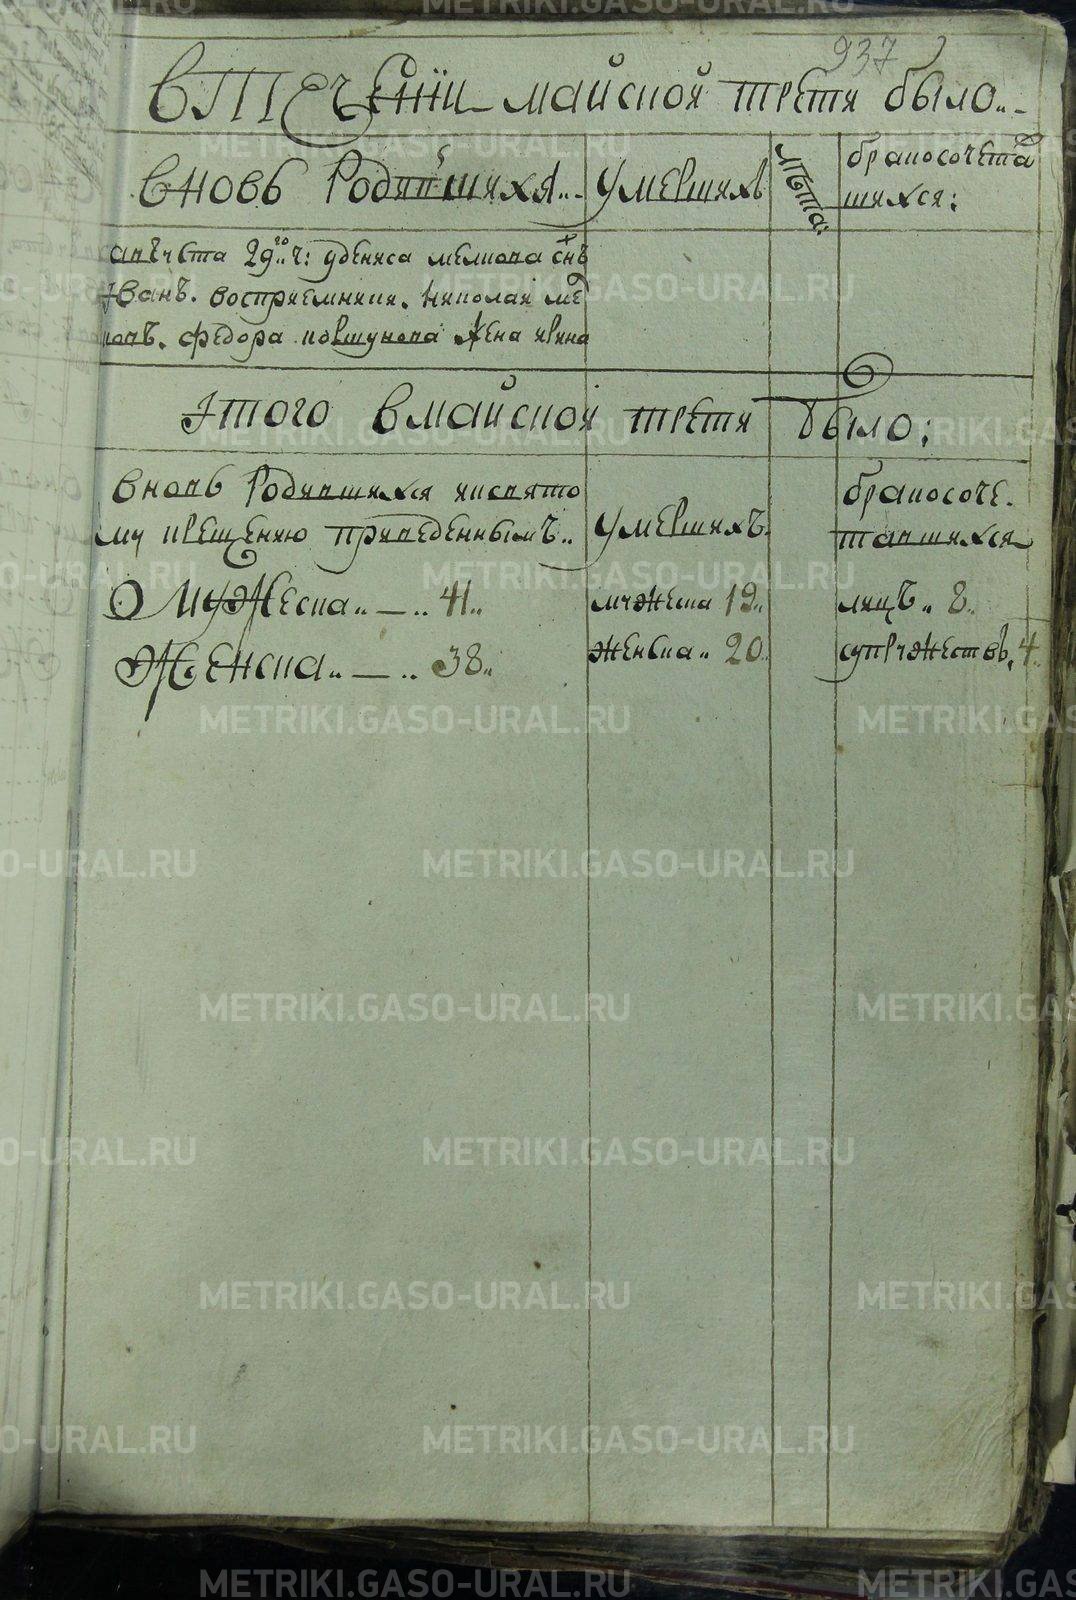 937
В ТЕЧЕНІИ майской трети было..
вновь Родившихся..
умершихъ
лѣта:
бракосочета
шихся:
августа 29го ч: у дениса мелкова снъ
Іванъ. восприемники. николай мел
ковъ. федора ковшунова жена ирина
Ітого в майской трети было:
вновь Родившихся и ксвято
му крещению приведеннымъ..
умершихъ.
бракосоче.
тавшихся
Мужеска.. — .. 41..
мужеска 19..
лицъ.. 8..
Женска.. — .. 38..
женска.. 20..
супружествъ. 4..
METRIKI.GASO-URAL.RU